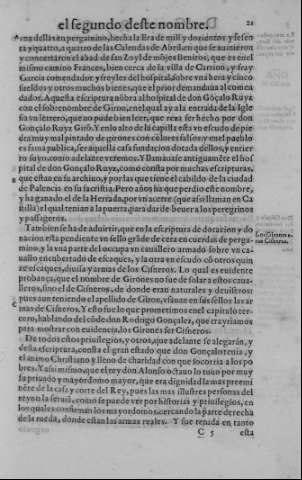 el segundo deste nombre. 21
ma della en pergamino, hecha la Era de mill y dozientos y seten
ta y quatro, a quatro de las Calendas de Abril en que se auinieron
y concertaron el abad de san Zoyl de mõjes Benitos, que es en el
mismo camino Frances, bien cerca de la villa de Carrion, y fray
Garcia comendador y freyles del hospital, sobre vna hera y cinco
sueldos y otros muchos bienes, que el prior demandaua al comen
dador. Aquesta escriptura nõbra al hospital de don Gõçalo Ruyz
con el sobrenombre de Giron, en el qual ay a la entrada de la Igle
sia vn letrero, que no pude bien leer, que reza ser hecho por don
Gonçalo Ruyz Girõ. Y en lo alto de la capilla está vn escudo de pie
dra muy mal puesto en que ay girones con calles o falsos, y en el pueblo
es fama publica, ser aquella casa fundacion dotada dellos, y entier
ro suyo, como adelante veremos. Y llamauase antiguamẽte el hos
pital de don Gonçalo Ruyz, como consta por muchas escripturas,
que están en su archiuo, y por las que tiene el cabildo de la ciudad
de Palencia en su sacristia. Pero años ha que perdio este nombre,
y ha ganado el de la Herrada, por vn acetre (que assi llaman en Ca
stilla) el qual tenian a la puerta, para dar de beuer a los peregrinos
y passageros.
Tambien se ha de aduirtir, que en la escriptura de dotacion y do
nacion esta pendiente vn sello grãde de cera en cuerdas de perga
mino, y la vna parte del occupa vn cauallero armado sobre vn ca
uallo encubertado de escaques, y la otra vn escudo cõ otros quin
ze escaques, diuisa y armas de los Cisneros. Lo qual es euidente
probança, que el nombre de Girõnes no fue de solar a estos caua-
lleros, sino el de Cisneros, de donde eran naturales y deuisseros:
pues aun teniendo el apellido de Giron, vsauan en sus sellos las ar
mas de Cisneros. Y esto fue lo que prometimos en el capitulo ter-
cero, hablando del cõde don Rodrigo Gonçalez, que trayriamos
para mostrar con euidencia, los Girones ser Cisneros.
De todos estos priuilegios, y otros, que adelante se alegarán, y
desta escriptura, consta el gran estado que don Gonçalo tenia, y
el animo Christiano y lleno de charidad con que socorria a los po
bres. Y assi mismo, que el rey don Alonso octauo lo tuuo por muy
su priuado y mayordomo mayor, que era dignidad la mas preemi
nẽte de la casa y corte del Rey, pues las mas illustres personas del
reyno la seruiã, como se puede ver por historias y priuilegios, en
los quales confirman los mayordomos, cercando la parte derecha
de la rueda, donde estan las armas reales. Y fue renada en tanto
C 5 esta